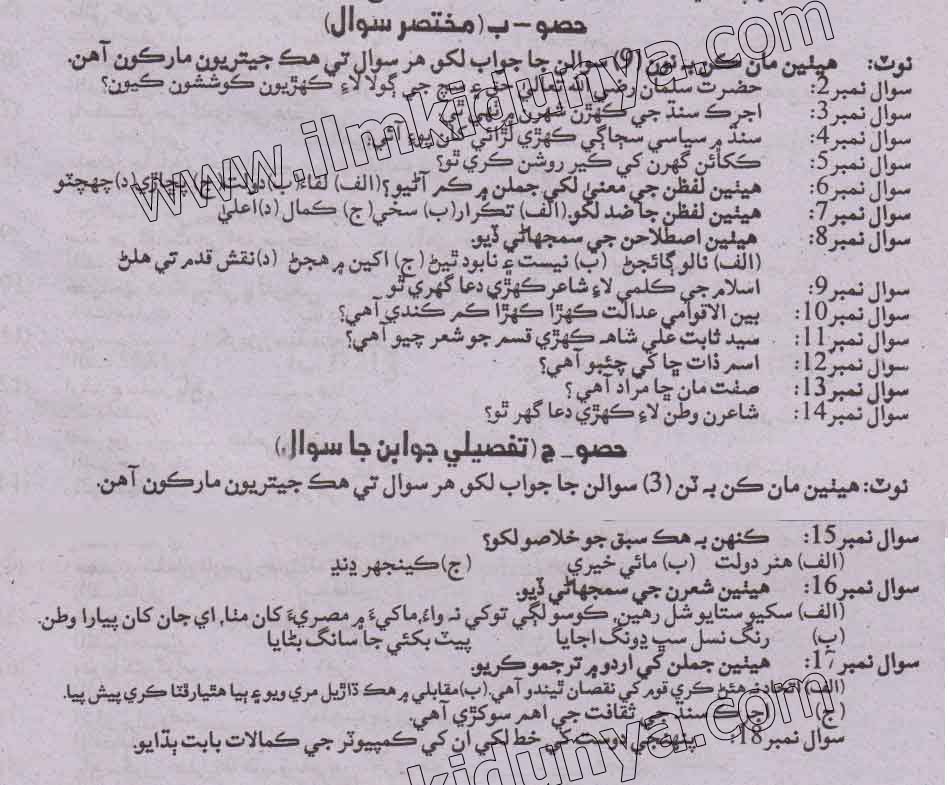 حصو – ب (مختصر سوال)
نوٽ: هيٺين مان ڪن به نون (9) سوالن جا جواب لکو. هر سوال تي هڪ جيتريون مارڪون آهن.
سوال نمبر2: حضرت سلمان رضي الله تعاليٰ حق ۽ سچ جي ڳولا لاءِ ڪهڙيون ڪوششون ڪيون؟
سوال نمبر3: اجرڪ سنڌ جي ڪهڙن شهرن ۾ ٺهي ٿي
سوال نمبر4: سنڌ ۾ سياسي سجاڳي ڪهڙي لڙائي کان پوءِ آئي؟
سوال نمبر5: ڪکائن گهرن کي ڪير روشن ڪري ٿو؟
سوال نمبر6: هيٺين لفظن جي معنيٰ لکي جملن ۾ ڪم آڻيو؟ (الف) لقاءَ (ب) دولت (ج) پڇاڙي (د) ڇهڇٽو
سوال نمبر7: هيٺين لفظن جا ضد لکو. (الف) تڪرار (ب) سخي (ج) ڪمال (د) اعليٰ
سوال نمبر8: هيٺين اصطلاحن جي سمجهاڻي ڏيو.
(الف) نالو ڳائجڻ (ب) نيست ۽ نابود ٿيڻ (ج) اکين ۾ هجڻ (د) نقش قدم تي هلڻ
سوال نمبر9: اسلام جي ڪلمي لاءِ شاعر ڪهڙي دعا گهري ٿو
سوال نمبر10: بين الاقوامي عدالت ڪهڙا ڪهڙا ڪم ڪندي آهي؟
سوال نمبر11: سيد ثابت علي شاهه ڪهڙي قسم جو شعر چيو آهي؟
سوال نمبر12: اسم ذات ڇا کي چئبو آهي؟
سوال نمبر13: صفت مان ڇا مراد آهي؟
سوال نمبر14: شاعرن وطن لاءِ ڪهڙي دعا گهر ٿو؟
حصو_ ج (تفصيلي جوابن جا سوال)
نوٽ: هيٺين مان ڪن به ٽن (3) سوالن جا جواب لکو. هر سوال تي هڪ جيتريون مارڪون آهن.
سوال نمبر15: ڪنهن به هڪ سبق جو خلاصو لکو؟
(الف) هنر دولت (ب) مائي خيري (ج) ڪينجهر ڍنڍ
سوال نمبر16: هيٺين شعرن جي سمجهاڻي ڏيو.
(الف) سکيو ستايو شل رهين، ڪوسو لڳي توکي نہ واءُ، ماکيءَ ۾ مصريءَ کان مٺا، اي جان کان پيارا وطن.
(ب) رنگ نسل سڀ ڍونگ اجايا پيٽ بکئي جا سانگ بڻايا
سوال نمبر17: هيٺين جملن کي اردو ۾ ترجمو ڪريو.
(الف) اتحاد نہ هئڻ ڪري قوم کي نقصان ٿيندو آهي. (ب) مقابلي ۾ هڪ ڌاڙيل مري ويو ۽ ٻيا هٿيار ڦٽا ڪري پيش پيا.
(ج) اجرڪ سنڌ جي ثقافت جي اهم سوکڙي آهي.
سوال نمبر18: پنهنجي دوست کي خط لکي ان کي ڪمپيوٽر جي ڪمالات بابت ٻڌايو.
www.ilmkidunya.com
kidunya.com